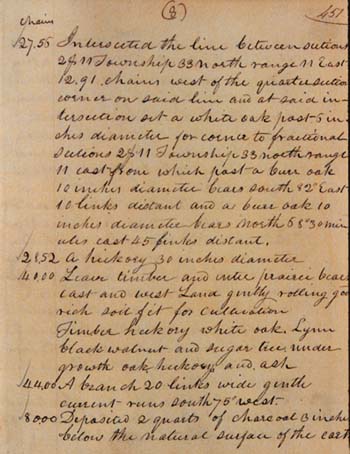 (8) 451
chains
27.55 Intersected the line between sections
2 & 11 Township 33 north range 11 East
12.91 chains west of the quarter section
corner on said line and at said in-
tersection set a white oak post 5 in
ches diameter for corner to fractional
sections 2 & 11 Township 33 north range
11 east from which post a burr oak
10 inches diameter bears south 82° East
10 links distant and a burr oak 10
inches diameter bears north 58° 30 min
utes east 45 links distant.
28.52 A hickory 30 inches diameter
40.00 Leave timber and enter prairie bears
east and west Land gently rolling good
rich soil fit for cultivation
Timber hickory white oak. Lynn
black walnut and sugar tree, under
growth oak, hickory and ash
44.00 A branch 20 links wide gentle
current runs south 75° west.
80.00 Deposited 2 quarts of charcoal 3 inches
below the natural surface of the earth